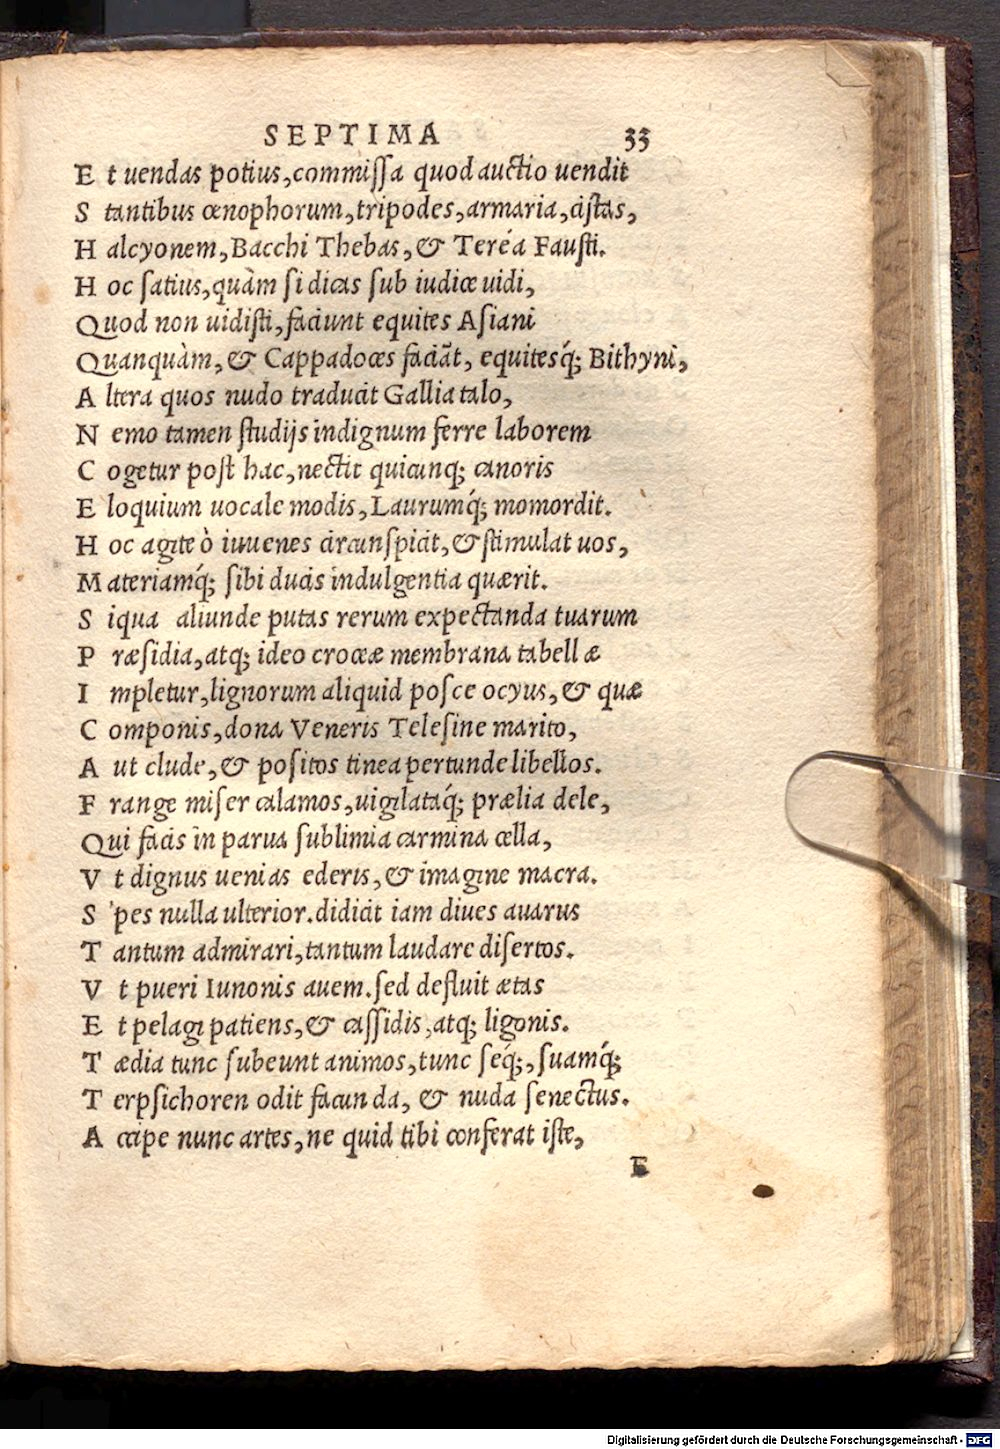 SEPTIMA 33
E t uendas potius,commiſſa quod auctio uendit
S tantibus œnophorum,tripodes,armaria,ciſtas,
H alcyonem,Bacchi Thebas,& Teréa Fauſti.
H oc ſatius,quàm ſi dicas ſub iudice uidi,
Quod non uidiſti,faciunt equites Aſiani
Quanquàm,& Cappadoces faciāt, equitesq́; Bithyni,
A ltera quos nudo traducit Gallia talo,
N emo tamen ſtudijs indignum ferre laborem
C ogetur poſt hac,nectit quicunq; canoris
E loquium uocale modis,Laurumq́; momordit.
H oc agite ò iuuenes circunſpicit,& ſtimulat uos,
M ateriamq́; ſibi ducis indulgentia quærit.
S iqua aliunde putas rerum expectanda tuarum
P ræſidia,atq; ideo croceæ membrana tabellæ
I mpletur,lignorum aliquid poſce ocyus,& quæ
C omponis,dona Veneris Teleſine marito,
A ut clude,& poſitos tinea pertunde libellos.
F range miſer calamos,uigilataq́; prælia dele,
Qui facis in parua ſublimia carmina cella,
V t dignus uenias ederis,& imagine macra.
S pes nulla ulterior.didicit iam diues auarus
T antum admirari,tantum laudare diſertos.
V t pueri Iunonis auem.ſed defluit ætas
E t pelagi patiens,& caſſidis,atq; ligonis.
T ædia tunc ſubeunt animos,tunc ſeq́;,ſuamq́;
T erpſichoren odit facunda, & nuda ſenectus.
A ccipe nunc artes,ne quid tibi conferat iſte,
E
Digitalisierung gefördert durch die Deutsche Forschungsgemeinschaft - DFG